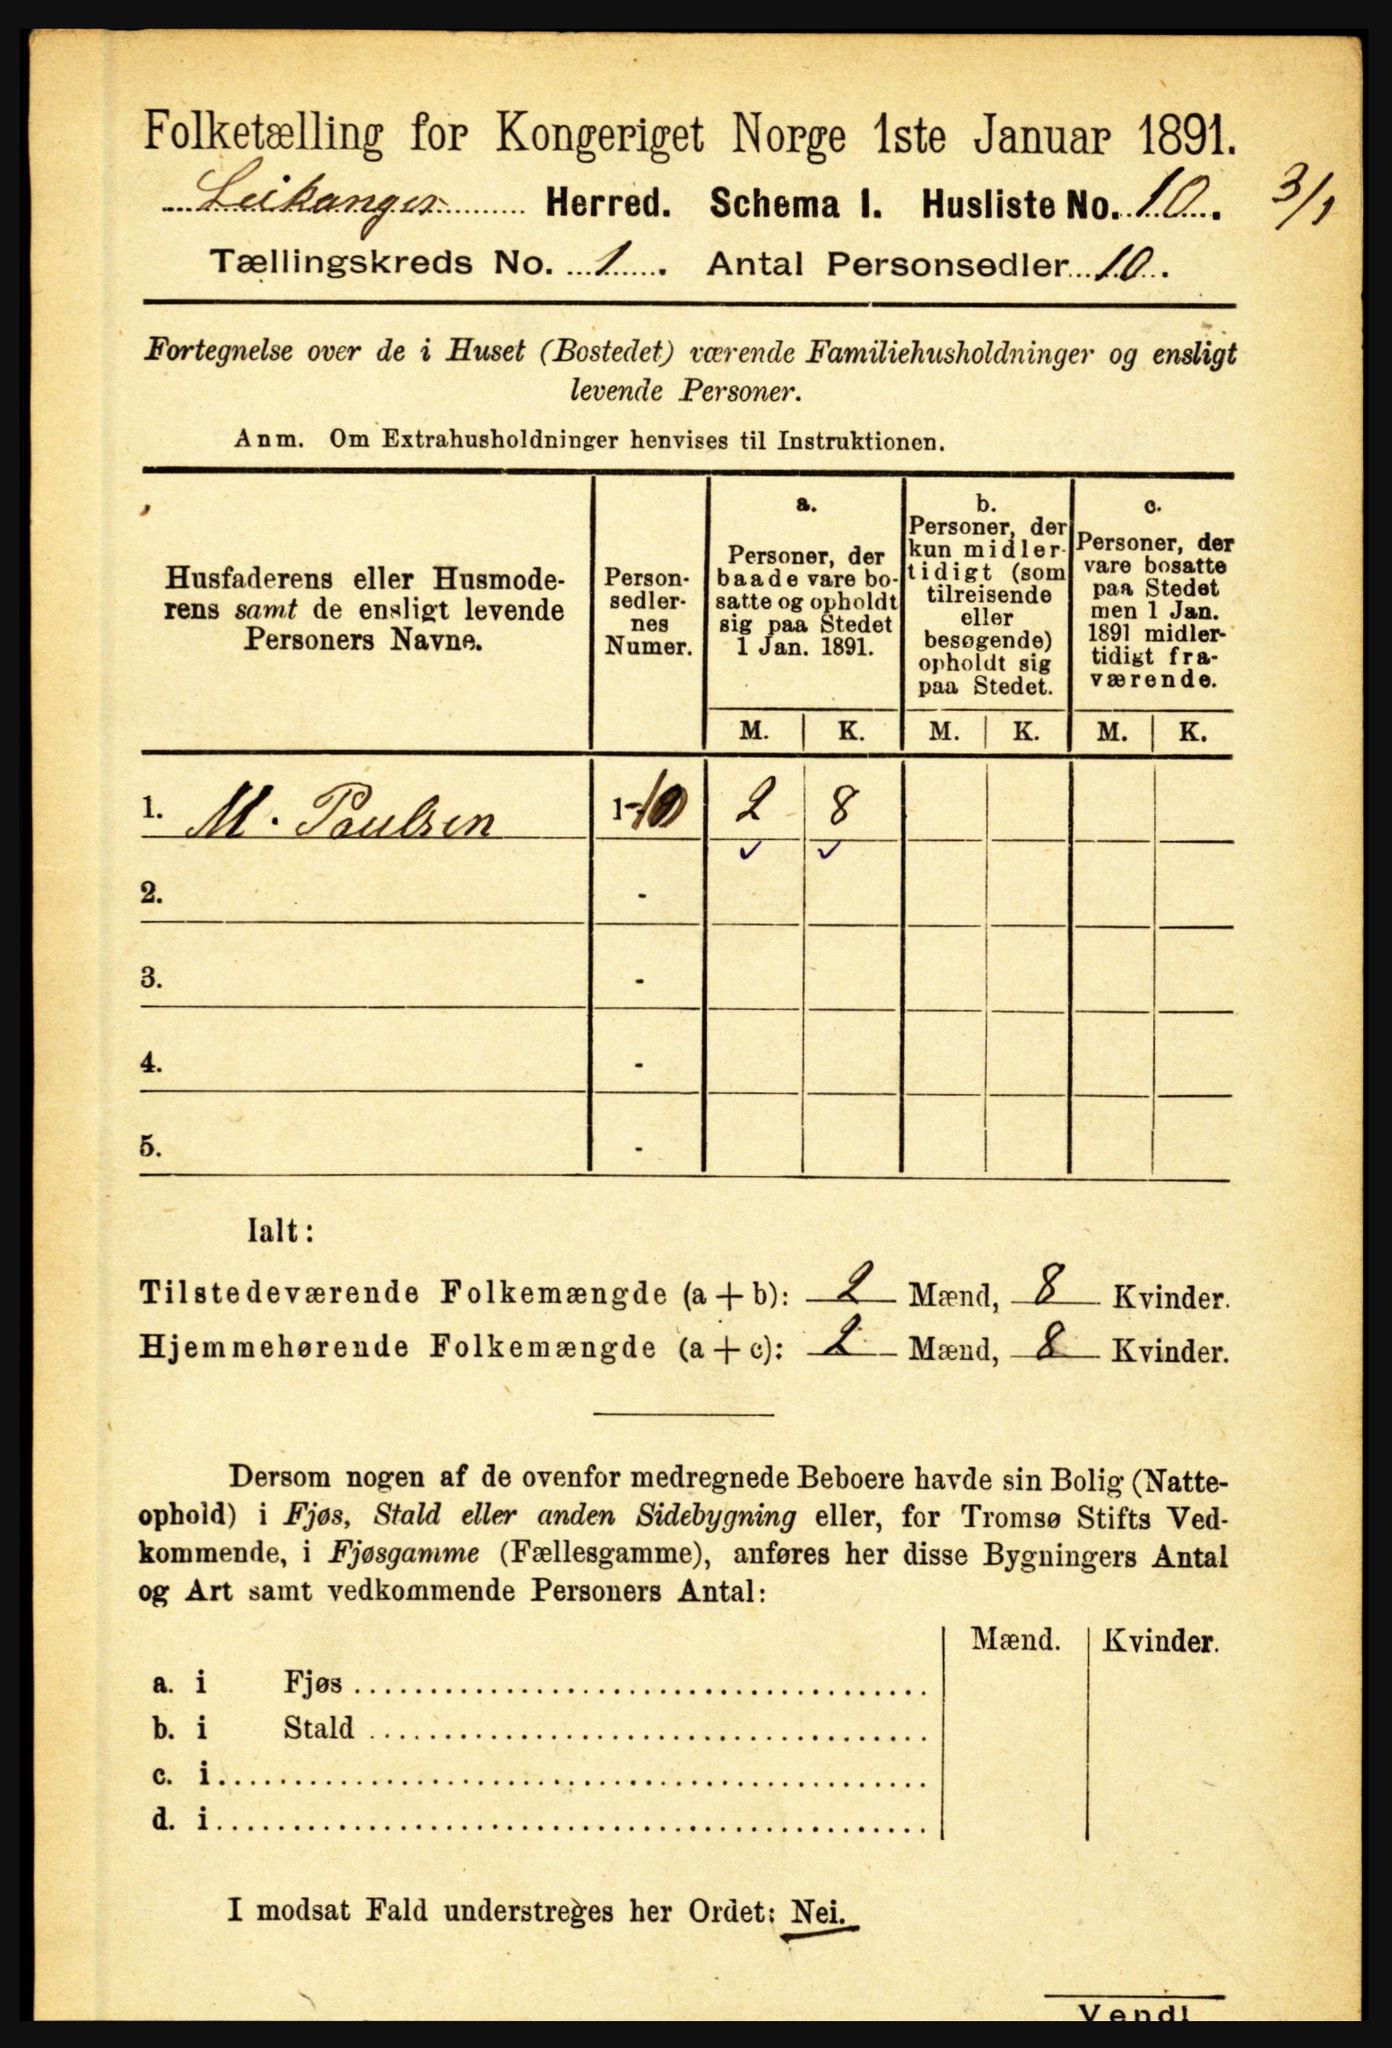 Folketælling for Kongeriget Norge 1ste Januar 1891.
Leikanger Herred. Schema 1. Husliste No. 10. 3/1
Tællingskreds No. 1. Antal Personsedler 10.
Fortegnelse over de i Huset (Bostedet) værende Familiehusholdninger og ensligt
levende Personer.
Anm. Om Extrahusholdninger henvises til Instruktionen.
Husfaderens eller Husmode-
rens samt de ensligt levende
Personers Navne.
Person-
sedler-
nes
Numer.
a.
Personer, der
baade vare bo-
satte og opholdt
sig paa Stedet
1 Jan. 1891.
b.
Personer, der
kun midler-
tidigt (som
tilreisende
eller
besøgende)
opholdt sig
paa Stedet.
c.
Personer, der
vare bosatte
paa Stedet
men 1 Jan.
1891 midler-
tidigt fra-
værende.
M. K. M. K. M. K.
1. M. Paulsen 1-10 2 8
2. -
3. -
4. -
5. -
Ialt:
Tilstedeværende Folkemængde (a+b): 2 Mænd, 8 Kvinder.
Hjemmehørende Folkemængde (a+c): 2 Mænd, 8 Kvinder.
Dersom nogen af de ovenfor medregnede Beboere havde sin Bolig (Natte-
ophold) i Fjøs, Stald eller anden Sidebygning eller, for Tromsø Stifts Ved-
kommende, i Fjøsgamme (Fællesgamme), anføres her disse Bygningers Antal
og Art samt vedkommende Personers Antal:
Mænd. Kvinder.
a. i Fjøs
b. i Stald
c. i
d. i
I modsat Fald understreges her Ordet: Nei.
Vend!